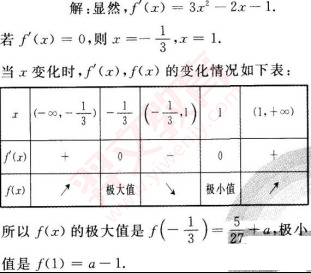 解:显然,f′(x) = 3x² − 2x − 1.
若 f′(x) = 0,则 x = −1/3, x = 1.
当 x 变化时,f′(x),f(x) 的变化情况如下表:
x (−∞, −1/3) −1/3 (−1/3, 1) 1 (1, +∞)
f′(x) + 0 − 0 +
f(x) ↗ 极大值 ↘ 极小值 ↗
所以 f(x) 的极大值是 f(−1/3) = 5/27 + a, 极小
值是 f(1) = a − 1.